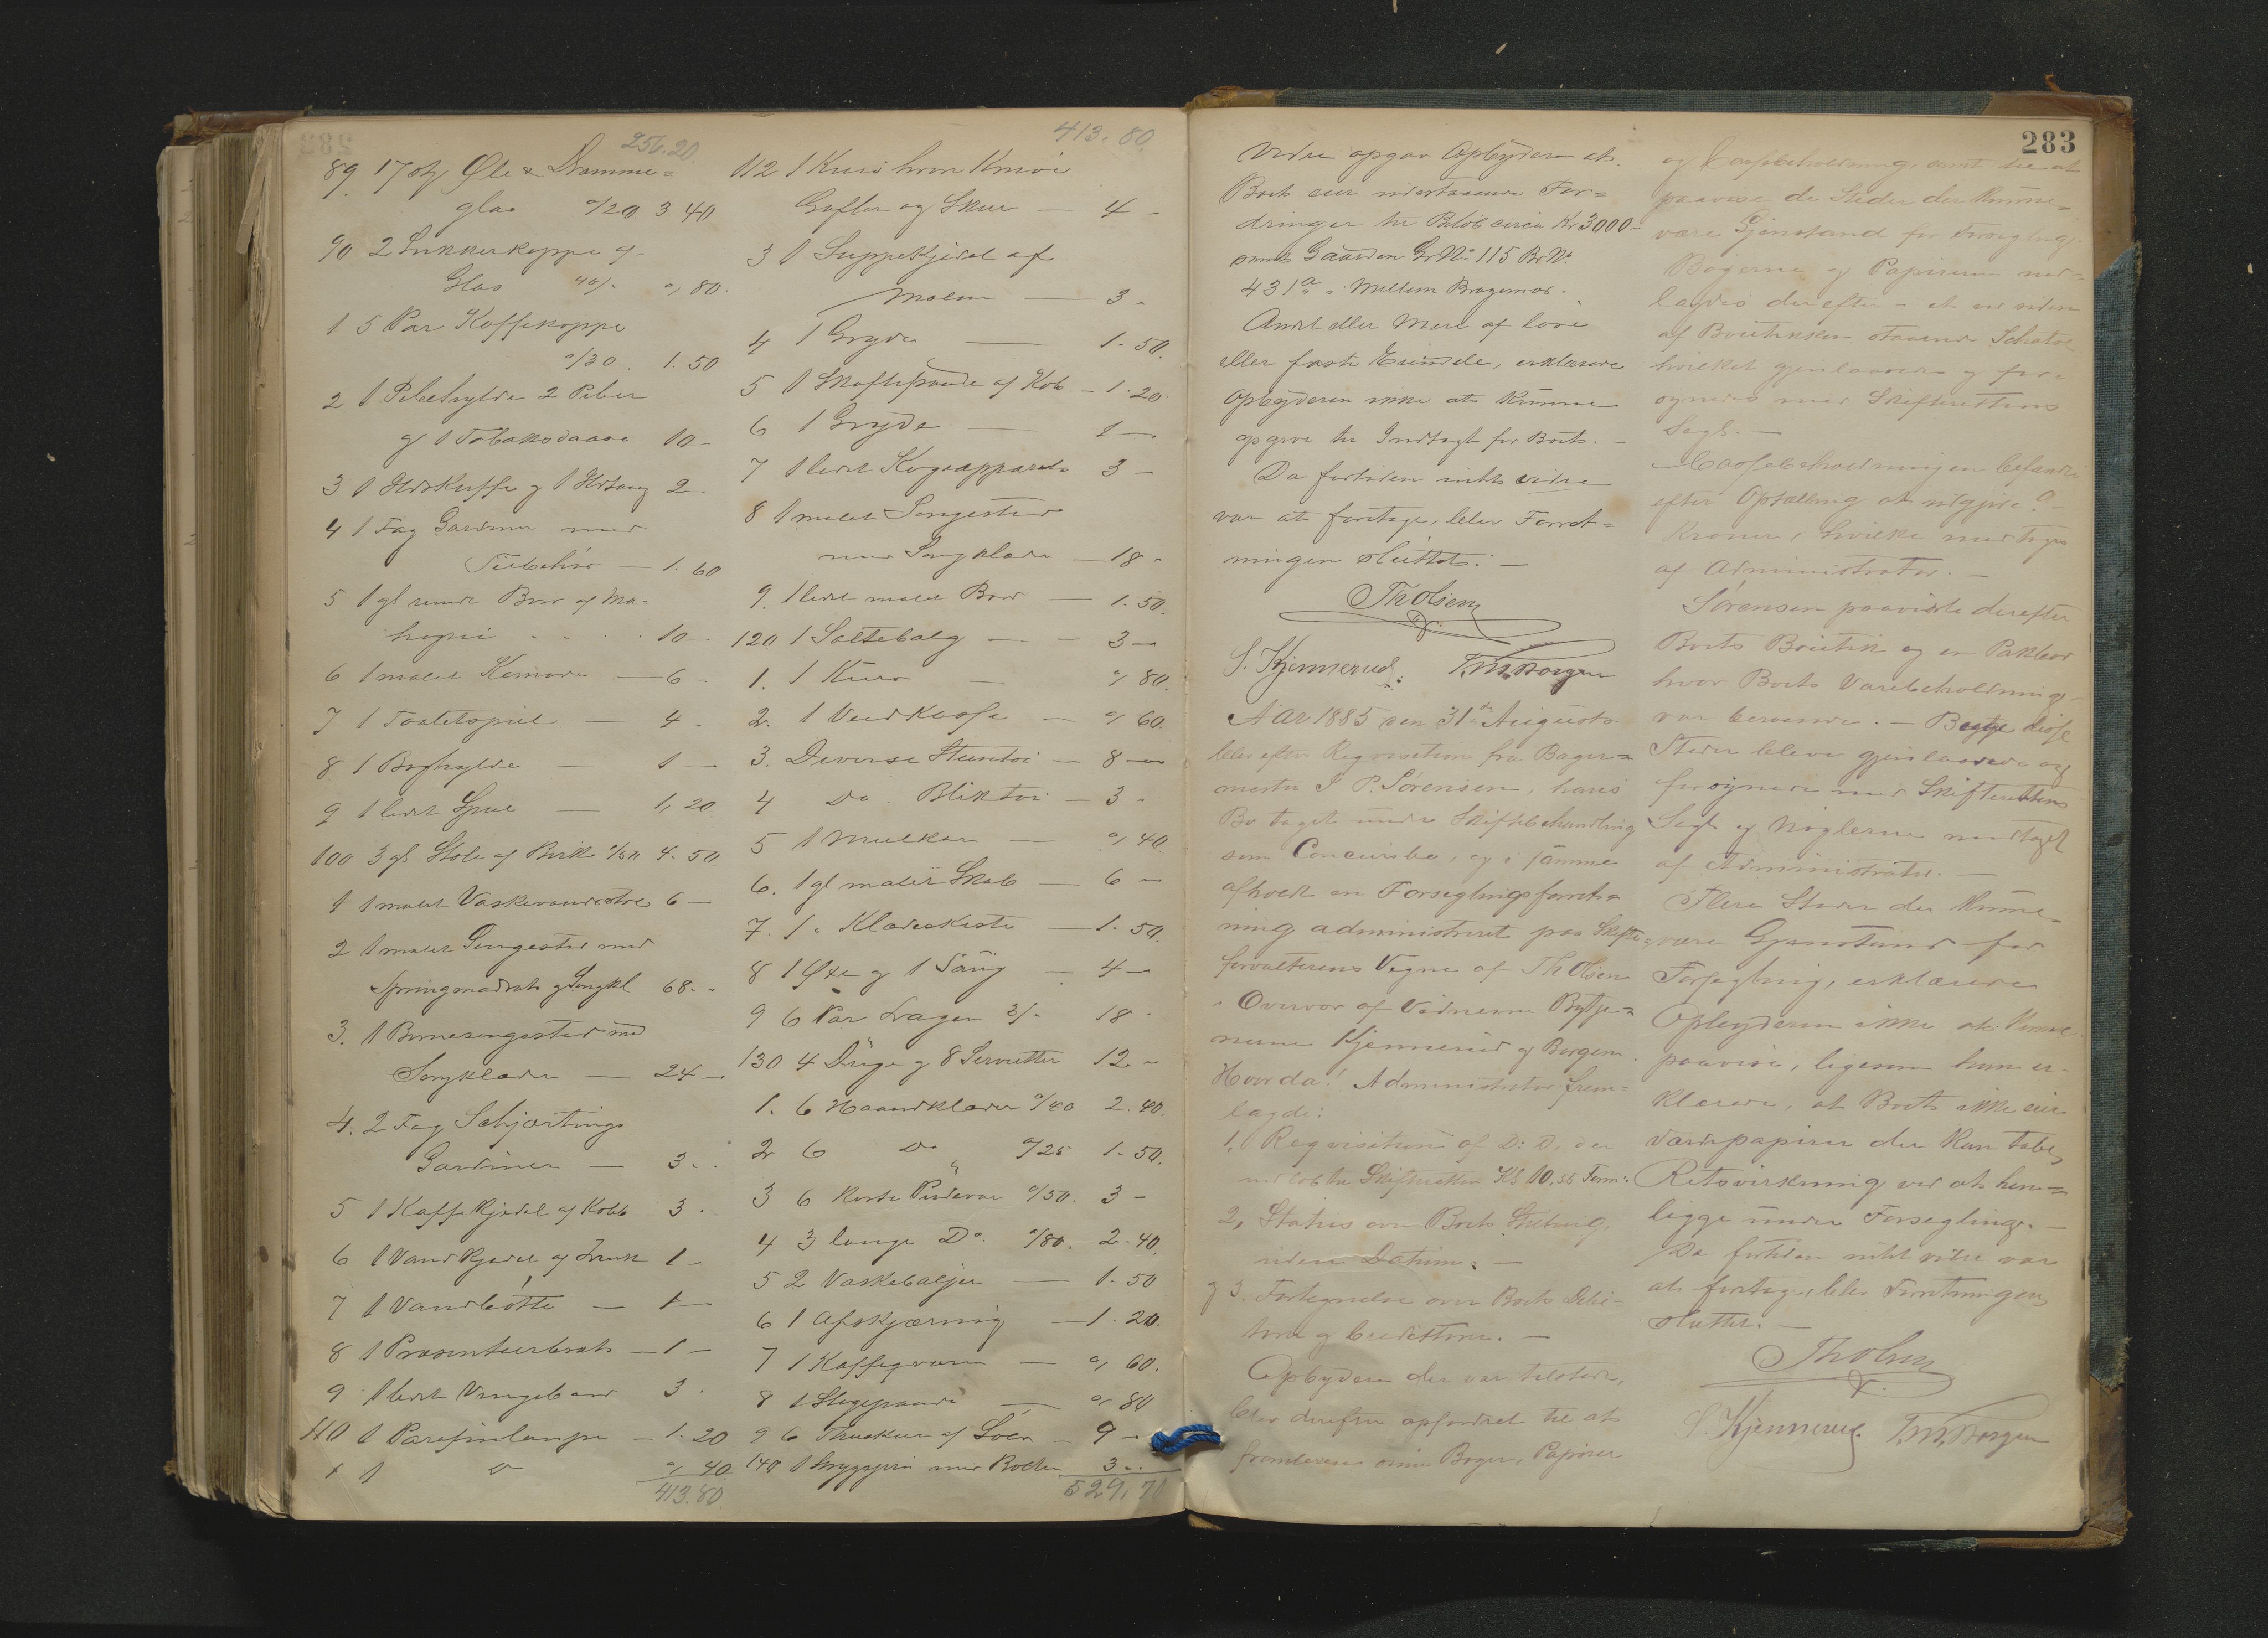 256.20
89 17 stk Øle & Dramme=
glas a/20 3.40
90 2 Sukkerkoppe af
Glas 40/- 0,80.
1 5 Par Kaffekoppe
a/30. 1.50
2 1 Pibehylde 2 Piber
og 1 Tobaksdaase 10 -
3 1 Ildskuffe og 1 Ildtang 2 -
4 1 Fag Gardiner med
Tilbehør — 1.60
5 1 gl rundt Bord af Ma=
hogni . . . . 10 -
6 1 malet Komode — 6 -
7 1 Toiletspeil — 4 -
8 1 Boghylde — 1 -
9 1 lidet Speil — 1,20
100 3 gl Stole af Birk 4.50
1 1 malet Vaskevandsstol 6 -
2 1 malet Sengested med
Springmadrats og Sengkl 68 - -
3. 1 Børnesengested med
Sengklæder — 24 -
4. 2 Fag Schjærtings
Gardiner — 3 - .
5 1 Kaffekjedel af Kobb 3 .
6 1 Vandkjedel af 1 -
7 1 Vandbøtte — 1 -
8 1 Præsenteerbræt — 1 -
9 1 lidet 3 .
110 1 Parafinlampe — 1.20
1 1 Do 0,40
413.80
413.80
112 1 Kurv hvori Knive
Gafler og Skeer — 4 -
3 1 Suppekjedel af
Malm — 3 -
4 1 Gryde — 1.50.
5 1 Skaftepande af Kob — 1.20.
6 1 Gryde — 1 -
7 1 lidet Kogeapparat 3 -
8 1 malet Sengested
med Sengklæder — 18 -
9. 1 lidet malet Bord — 1.50.
120 1 Saltebalg — - 3 -
1. 1 Kurv — 0,80.
2. 1 Vedkasse — 0,60.
3. Diverse Stentøi — 8 -
4 Do Bliktøi — 3 -
5 1 Melkar — 0,40
6. 1 gl malet Skab — 6 -
7. 1 " Klædeskiste — 1.50.
8 1 Øxe og 1 Saug — 4 -
9 6 Par Lagen 3/- 18 -
130 4 Duge og 8 Servietter 12 -
1. 6 Haandklæder a/40 2.40.
2 6 Do a/25 1.50.
3 6 korte Pudevar a/50. 3 -
4 3 lange Do. a/80. 2.40.
5 2 Vaskebaljer — 1.50
6 1 Afskjæring — 1.20.
7 1 Kaffeqværn — 0,60.
8 1 Stegepande — 0,80
9 6 Theskeer af Sølv — 9 -
140 1 med Bolter 3 - .
529,70
283
Videre opgav Opbyderen at
Boet eier udestaaende For=
dringer til Beløb circa Kr 3000 -
samt Gaarden Gr No 115 Br No
431a Mellem Bragernæs.
Andet eller Mere af løse
eller faste Eiendele, erklærede
Opbyderen ikke at kunne
opgive til Indtægt for Boet. -
Da fortiden intet videre
var at foretage, blev Forret=
ningen sluttet. -
Th Olsen
S. Kjennerud. T. M. Borgen
Aar 1885 den 31te August
blev efter Reqvisition fra Bager=
mester S P. Sørensen, hans
Bo taget under Skiftebehandling
som Concursbo, og i samme
afholdt en Forseglingsforret=
ning administreret paa Skifte=
forvalterens Vegne af Th Olsen
i Overvær af Vidnerne Bytje=
nerne Kjennerud og Borgen.
Hvor da! Administrator frem=
lagde:
1, Reqvisition af D: D, der
indløb til Skifteretten Kl 10,55 Form:
2, Status over Boets Stilling,
uden Datum. -
og 3. Fortegnelse over Boets Debi=
torer og Creditorer. -
Opbyderen der var tilstede,
blev derefter opfordret til at
fremlevere sine Bøger, Papirer
og Cassebeholdning, samt til at
paavise de Steder der kunne
være Gjenstand for Forsegling.
Bøgerne og Papirerne ned=
lagdes derefter i et ved siden
af Boutikken staaende Schatol
hvilket gjenlaasedes og for=
synedes med Skifterettens
Segl. -
Cassebeholdningen befandtes
efter Optælling at udgjøre 9 -
Kroner, hvilke modtoges
af Administrator. -
Sørensen paaviste derefter
Boets Boutik og en Pakbod
hvor Boets Varebeholdning
var beroende. - Begge disse
Steder bleve gjenlaasede og
forsynede med Skifterettens
Segl og Nøglerne modtaget
af Administrator. -
Flere Steder der kunne
være Gjenstand for
Forsegling, erklærede
Opbyderen ikke at kunne
paavise, ligesom han er=
klærede, at Boet ikke eier
Værdipapirer der kan tabe
Retsvirkning ved at hen=
ligge under Forsegling. -
Da fortiden intet videre var
at foretage, blev Forretningen
sluttet. -
Th Olsen
S. Kjennerud. T. M. Borgen